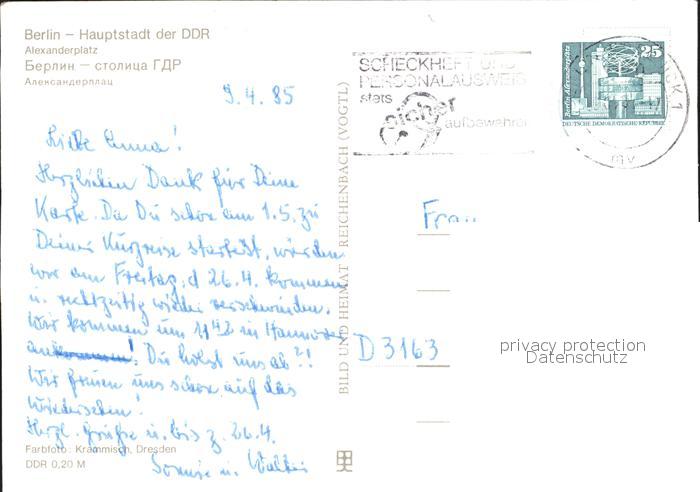 Berlin – Hauptstadt der DDR
Alexanderplatz
Берлин – столица ГДР
Александерплац
9.4.85
Liebe Emma!
Herzlichen Dank für Deine
Karte. Da Du schon am 1.5. zu
Deiner Kurzreise startest, werden
wir am Freitag, d 26.4. kommen
u. rechtzeitig wieder verschwinden.
Wir kommen um 11 42 in Hannover
an! Du holst uns ab?!
Wir freuen uns schon auf das
Wiedersehen!
Herzl. Grüße u. bis z. 26.4.
u. Walter
Farbfoto: Krammisch, Dresden
DDR 0,20 M
BILD UND HEIMAT REICHENBACH (VOGTL)
SCHECKHEFT UND
PERSONALAUSWEIS
stets
sicher
aufbewahren
25
Berlin, Alexanderplatz
DEUTSCHE DEMOKRATISCHE REPUBLIK
Frau
D 3163
privacy protection
Datenschutz